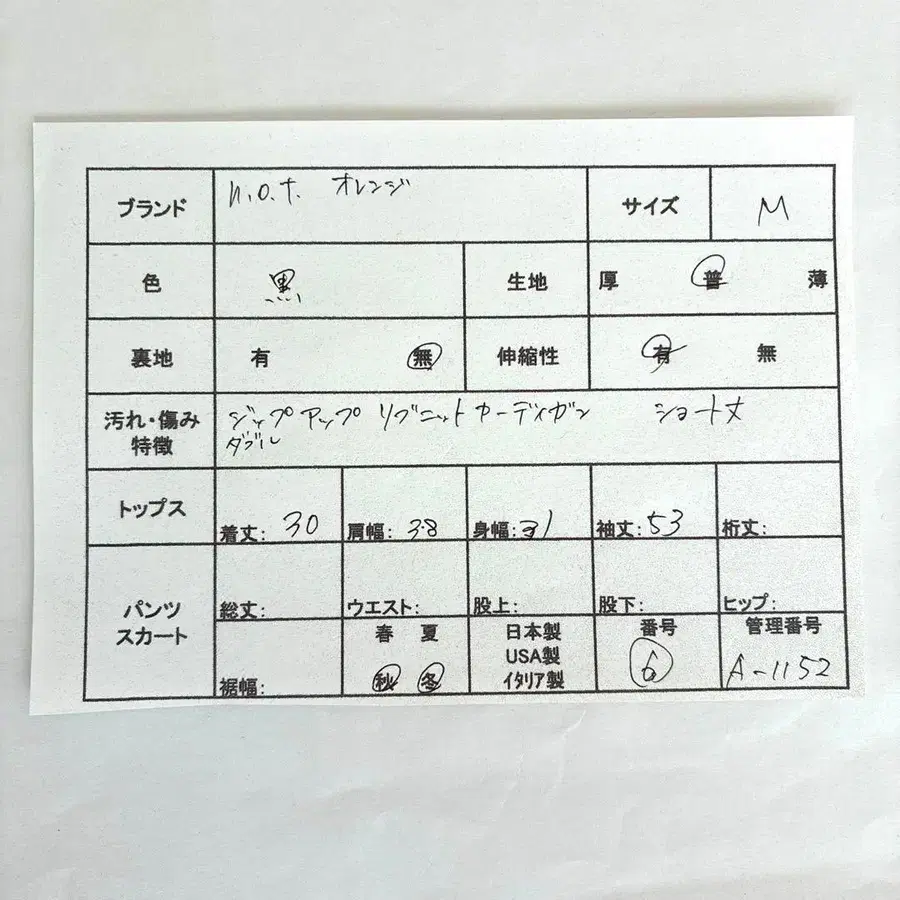 ブランド n.o.t. オレンジ サイズ M
色 黒 生地 厚 普 薄
裏地 有 無 伸縮性 有 無
汚れ・傷み 特徴 ジップアップ リブニットカーディガン ショート丈
ダブル
トップス 着丈: 30 肩幅: 38 身幅: 31 袖丈: 53 裄丈:
パンツ スカート 総丈: ウエスト: 股上: 股下: ヒップ:
裾幅: 春 夏 秋 冬 日本製 USA製 イタリア製 番号 6 管理番号 A-1152